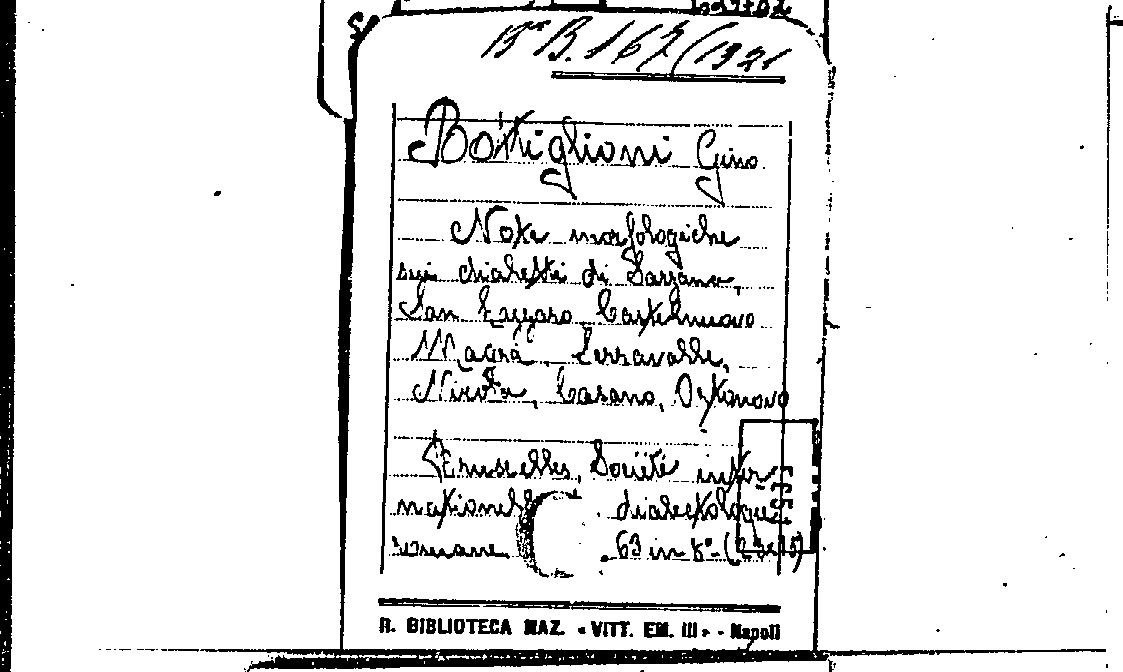 B. 167/1921
Bottiglioni Gino
Note morfologiche
sui dialetti di Sarzana,
San Lazzaro, Castelnuovo
Magra, Serravalle,
Nicola, Casano, Ortonovo
Bruxelles, Société inter
nationale dialectologie
romane 63 in 8°
R. BIBLIOTECA NAZ. «VITT. EM. III» - Napoli